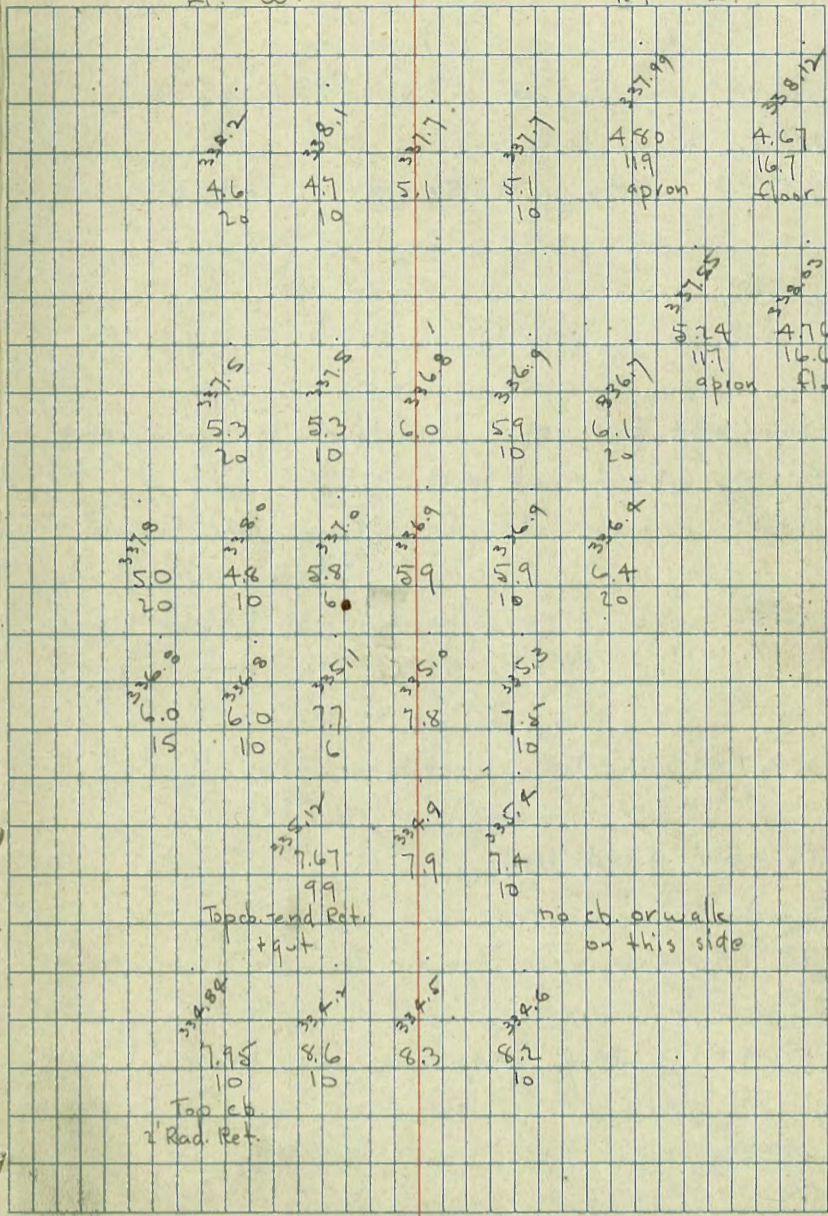 337.99 338.12
338.2 338.1 337.7 337.7 4.80 4.67
11.9 16.7
4.6 4.7 5.1 5.1 apron floor
20 10 10
337.55 338.03
5.24 4.76
11.7 16.6
337.5 337.5 336.8 336.9 336.7 apron
5.3 5.3 6.0 5.9 6.1
20 10 10 20
337.8 338.0 337.0 336.9 336.9 336.4
5.0 4.8 5.8 5.9 5.9 6.4
20 10 6 10 20
336.8 336.8 335.1 335.0 335.3
6.0 6.0 7.7 7.8 7.5
15 10 6 10
335.12 334.9 335.4
7.67 7.9 7.4
99 10
Top cb. - end Ret. no cb. or walk
+ gut on this side
334.84 334.2 334.5 334.6
7.95 8.6 8.3 8.2
10 10 10
Top cb
2' Rad. Ret.